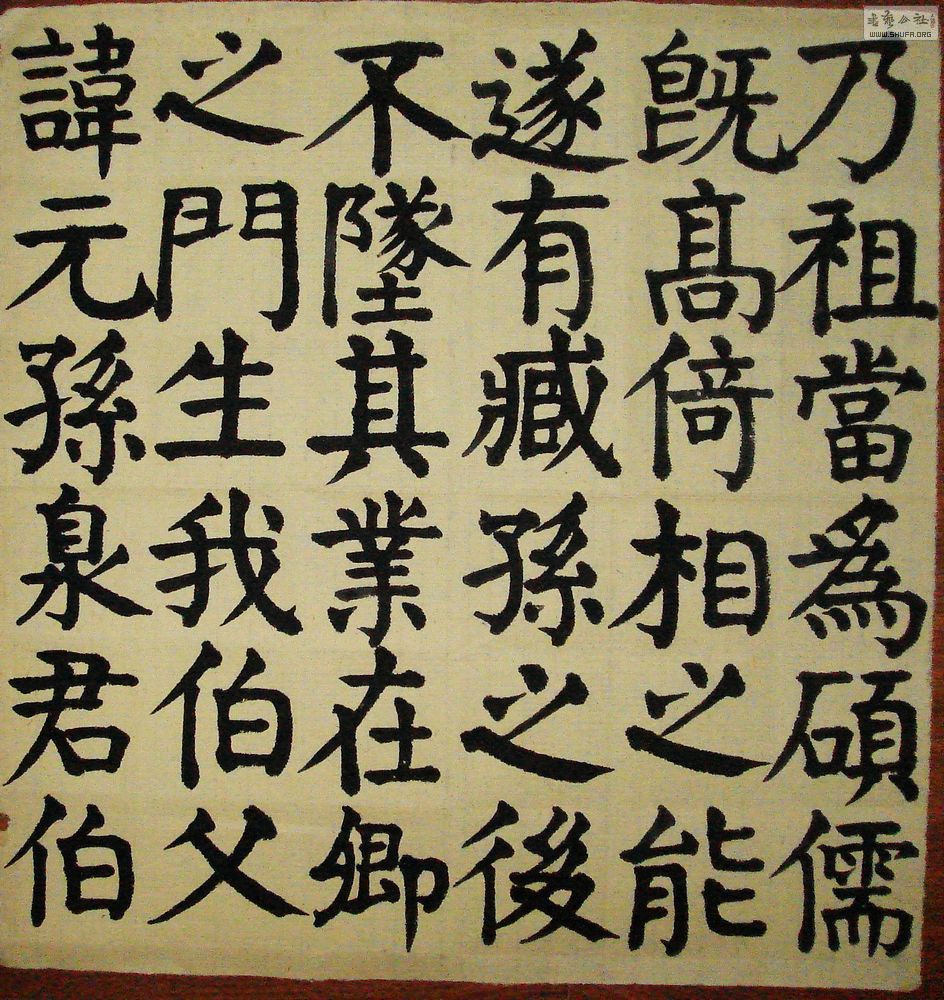 乃祖當為碩儒
旣髙倚相之能
遂有臧孫之後
不墜其業在卿
之門生我伯父
諱元孫泉君伯
书艺公社
WWW.SHUFA.ORG